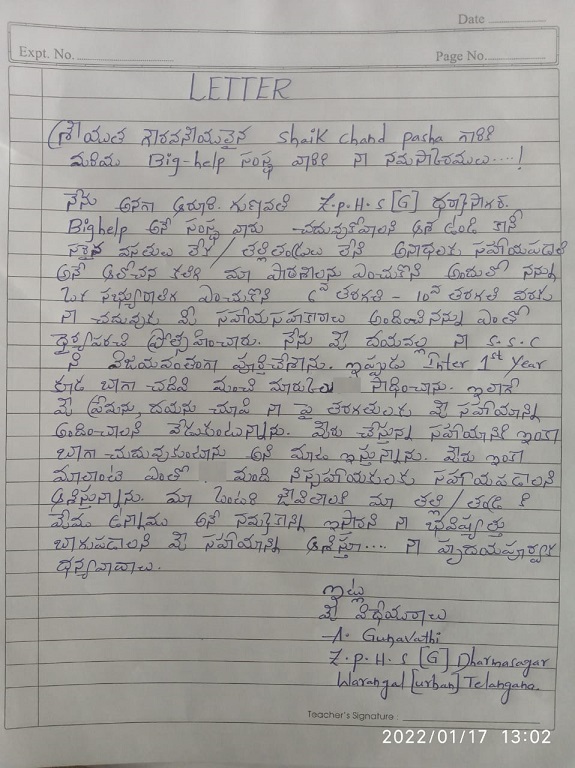 Date
Expt. No.
Page No.
LETTER
శ్రీయుత గౌరవనీయులైన Shaik Chand Pasha గారికి
మరియు Big-help సంస్థ వారికి నా నమస్కారములు....!
నేను అనగా ఆరూరి గుణవతి Z.P.H.S [G] ధర్మసాగర్.
Bighelp అనే సంస్థ వారు చదువుకోవాలని ఆశ ఉండి కానీ
సరైన వసతులు లేక / తల్లితండ్రులు లేని అనాథలకు సహాయపడాలి
అనే ఆలోచన కలిగి మా పాఠశాలను ఎంచుకొని అందులో నన్ను
ఒక సభ్యురాలిగా ఎంచుకొని 6వ తరగతి - 10వ తరగతి వరకు
నా చదువుకు మీ సహాయసహకారాలు అందించి నన్ను ఎంతో
ధైర్యపరచి ప్రోత్సహించారు. నేను మీ దయవల్ల నా S.S.C
ని విజయవంతంగా పూర్తిచేసాను. ఇప్పుడు Inter 1st Year
కూడ బాగా చదివి మంచి మార్కులు సాధించాను. ఇలాగే
మీ ప్రేమను, దయను చూపి నా పై తరగతులకు మీ సహాయాన్ని
అందించాలని వేడుకుంటున్నాను. మీరు చేస్తున్న సహాయానికి ఇంకా
బాగా చదువుకుంటాను అని మాట ఇస్తున్నాను. మీరు ఇంకా
మాలాంటి ఎంతో మంది నిస్సహాయకులకు సహాయపడాలని
ఆశిస్తున్నాను. మా ఒంటరి జీవితాలకి మా తల్లి / తండ్రి కి
మేము ఉన్నాము అనే నమ్మకాన్ని ఇస్తారని నా భవిష్యత్తు
బాగుపడాలని మీ సహాయాన్ని ఆశిస్తూ.... నా హృదయపూర్వక
ధన్యవాదాలు.
ఇట్లు
మీ విధేయురాలు
A. Gunavathi
Z.P.H.S [G] Dharmasagar
Warangal [urban] Telangana.
Teacher's Signature :
2022/01/17 13:02